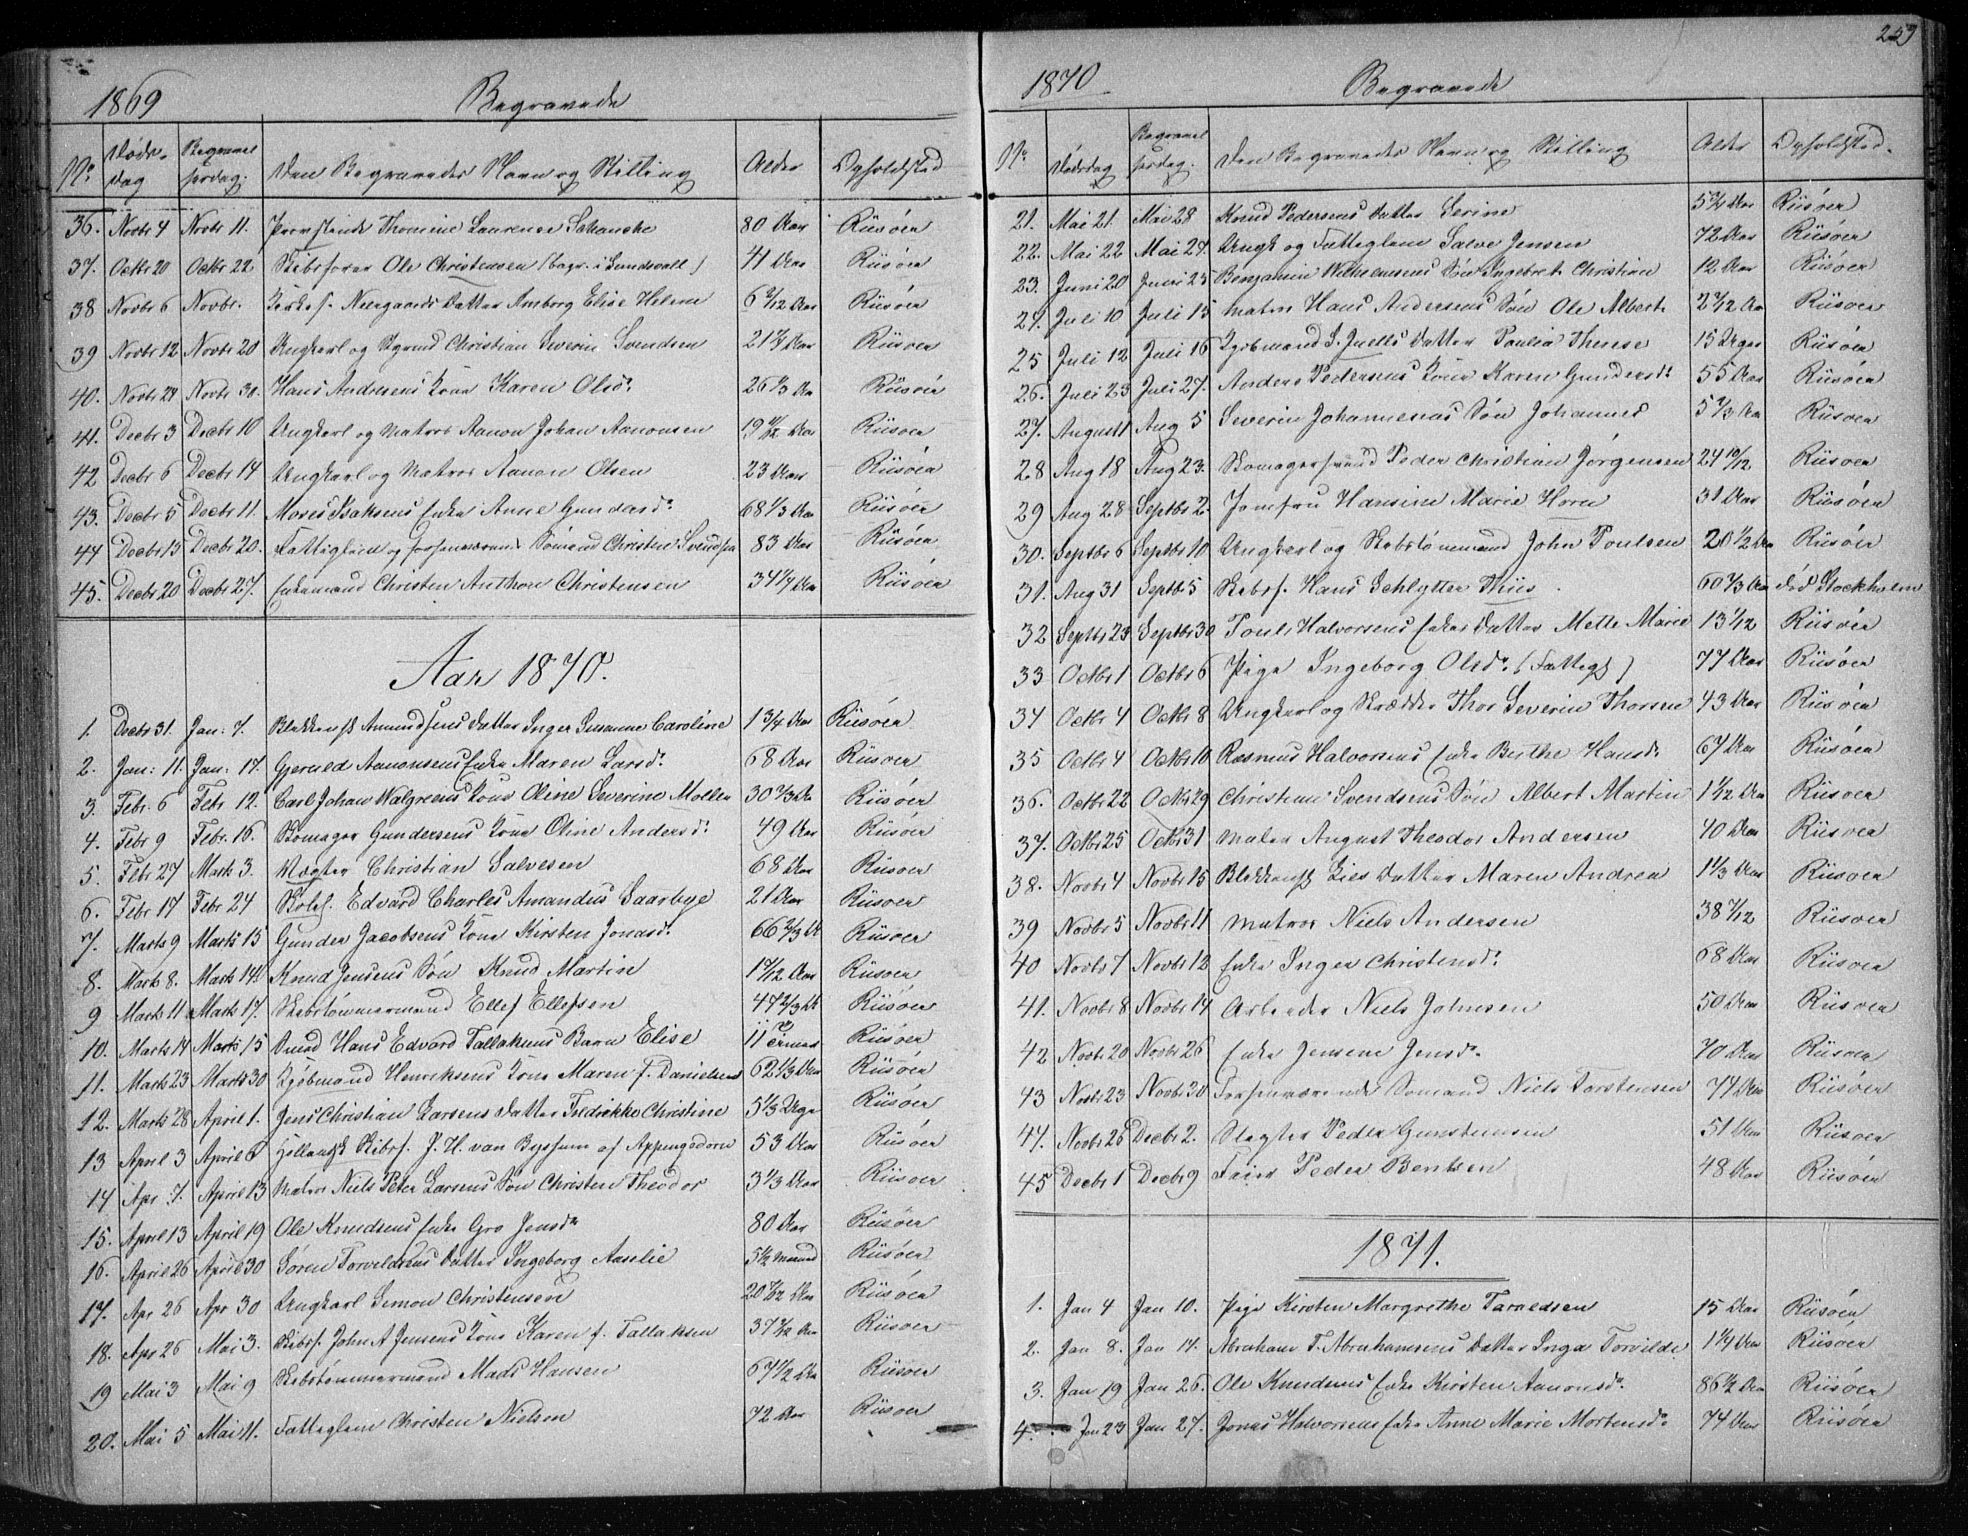 253
1869 Begravede
No Døds-dag Begravelsesdag. Den Begravedes Navn og Stilling Alder Opholdsted
36. Novbr 4 Novbr 11. Thomine Laurence Schanche 80 Aar Riisöer
37. Octbr 20 Octbr 22 Skibsfører Ole Christensen (begr. i Sundsvall) 41 Aar Riisöer
38 Novbr 6 Novbr. Neergaards Datter Amborg Elise Helene 6 2/12 Aar Riisöer
39 Novbr 12 Novbr 20 Ungkarl og Christian Severin Svendsen 21 Aar Riisöer
40. Novbr 24 Novbr 30. Hans Andersens Kone Karen Olsdr 26 Aar Riisöer
41. Decbr 3 Decbr 10 Ungkarl og Matros Aanon Johan Aanonsen 19 Aar Riisöer
42 Decbr 6 Decbr 14 Ungkarl og Matros Aanon Olsen 23 Aar Riisöer
43. Decbr 5 Decbr 11. Moses Isaksens Enke Anne Gundersdr 68 1/3 Aar Riisöer
44 Decbr 13 Decbr 20. Fattiglem og Sömand Christen Svendsen 83 Aar Riisöer
45. Decbr 20 Decbr 27. Enkemand Christen Anthon Christensen 34 1/4 Aar Riisöer
Aar 1870.
1. Decbr 31. Jan: 7. Amundsens Datter Inger Susanne Caroline 1 3/4 Aar Riisöer
2. Jan: 11. Jan: 17. Gjeruld Aanonsens Enke Maren Larsdr 68 Aar Riisöer
3. Febr. 6 Febr 12. Carl Johan Walgreens Kone Oline Severine Möller 30 Aar Riisöer
4. Febr 9 Febr. 16. Skomager Gundersens Kone Oline Andersdr 49 Aar Riisöer
5. Febr 27 Marts 3. Vægter Christian Salvesen 68 Aar Riisöer
6. Febr 17 Febr 24 Edvard Charles Amandus Saarbye 21 Aar Riisöer
7. Marts 9 Marts 15 Gunder Jacobsens Kone Kirsten Jonasdr 66 2/3 Riisöer
8. Marts 8. Marts 14 Knud Jensens Sön Knud Martin 1 Aar Riisöer
9 Marts 11 Marts 17. Skibstömmermand Ellef Ellefsen 47 2/3 Riisöer
10. Marts 14 Marts 15 Smed Hans Edvard Tallaksens Barn Elise 11 Riisöer
11. Marts 23 Marts 30 Kjöbmand Henriksens Kone Maren f. Danielsen 62 1/3 Aar Riisöer
12. Marts 28 April 1. Jens Christian Larsens Datter Fredrikke Christine 5 1/3 Uge Riisöer
13 April 3 April 6 Hollandsk Skibsf. J. H. van Byssum af Appingedam 53 Aar Riisöer
14 Apr. 7. April 13 Matros Niels Peter Larsens Sön Christen Theodor 3 1/3 Aar Riisöer
15. April 13 April 19 Ole Knudsens Enke Gro Jensdr 80 Aar Riisöer
16. April 26 April 30 Sören Torvildsens Datter Ingeborg Aaselie 5 1/2 Maaned Riisöer
17. Apr 26 Apr 30 Ungkarl Simon Christensen 20 Aar Riisöer
18. Apr 26 Mai 3. Skibsf. John A Jensens Kone Karen f. Tallaksen 37 Aar Riisöer
19 Mai 3 Mai 9 Skibstömmermand Mads Hansen 67 1/2 Aar Riisöer
20. Mai 5 Mai 11. Fattiglem Christen Nielsen 72 Aar Riisöer
1870 Begravede
No Dödsdag Begravelsesdag. Den Begravedes Navn og Stilling Alder Opholdsted.
21. Mai 21. Mai 28 Knud Pedersens Datter Serine 5 3/4 Aar Riisöer
22. Mai 22 Mai 27. Ungk og Fattiglem Salve Jensen 72 Aar Riisöer
23. Juni 20 Juni 25 Benjamin Wilhelmsens Sön Ingebret Christian 12 Aar Riisöer
24. Juli 10 Juli 15 Matros Hans Andersens Sön Ole Albert 2 Aar Riisöer
25 Juli 12 Juli 16 Kjöbmand S. Juells Datter Paulia Therese 15 Uger Riisöer
26. Juli 23 Juli 27. Anders Pedersens Kone Karen Gundersdr 55 Aar Riisöer
27. August 1 Aug 5 Severin Johannesens Sön Johannes 5 Aar Riisöer
28 Aug 18 Aug 23. Skomagersvend Peder Christian Jörgensen 24 10/12 Riisöer
29 Aug 28 Septbr 2. Jomfru Hansine Marie Horn 31 Aar Riisöer
30. Septbr 6 Septbr 10 Ungkarl og Skibstömmermand John Poulsen 20 1/2 Aar Riisöer
31. Aug 31 Septbr 5 Skibsf. Hans Schlytter Thiis 60 Aar död Stockholm
32 Septbr 23 Septbr 30 Pouls Halvorsens Enkes Datter Mette Marie 13 1/12 Riisöer
33 Octbr 1 Octbr 6 Pige Ingeborg Olsdr (Fattig) 77 Aar Riisöer
34 Octbr 4 Octbr 8 Ungkarl og Skrædder Thor Severin Thorsen 43 Aar Riisöer
35 Octbr 4 Octbr 10 Rasmus Halvorsens Enke Berthe Hansdr 67 Aar Riisöer
36. Octbr 22 Octbr 29 Christian Svendsens Sön Albert Martin 1 1/2 Aar Riisöer
37. Octbr 25 Octbr 31 Maler August Theodor Andersen 40 Aar Riisöer
38. Novbr 4 Novbr 15 Lies Datter Maren Andrea 1 1/3 Aar Riisöer
39 Novbr 5 Novbr 11 Matros Niels Andersen 38 Riisöer
40 Novbr 7 Novbr 12 Enke Inger Christensdr 68 Aar Riisöer
41. Novbr 8 Novbr 14 Arbeider Niels Johnsen 50 Aar Riisöer
42 Novbr 20 Novbr 26 Enke Jensine Jensdr 70 Aar Riisöer
43 Novbr 23 Novbr 30 Sömand Niels Torstensen 74 Aar Riisöer
44. Novbr 26 Decbr 2. Slagter Peder Gunstensen 51 Aar Riisöer
45 Decbr 1 Decbr 9 Peder Bentsen 48 Aar Riisöer
1871.
1. Jan 4 Jan 10. Pige Kirsten Margrethe Taraldsen 15 Aar Riisöer
2. Jan 8. Jan 14. Abraham T. Abrahamsens Datter Inga Torvilde 1 1/4 Aar Riisöer
3. Jan 19 Jan 26. Ole Knudsens Enke Kirsten Aanonsdr 86 1/2 Aar Riisöer
4. Jan 23 Jan 27. Jonas Halvorsens Enke Anne Marie Mortensdr 74 Aar Riisöer